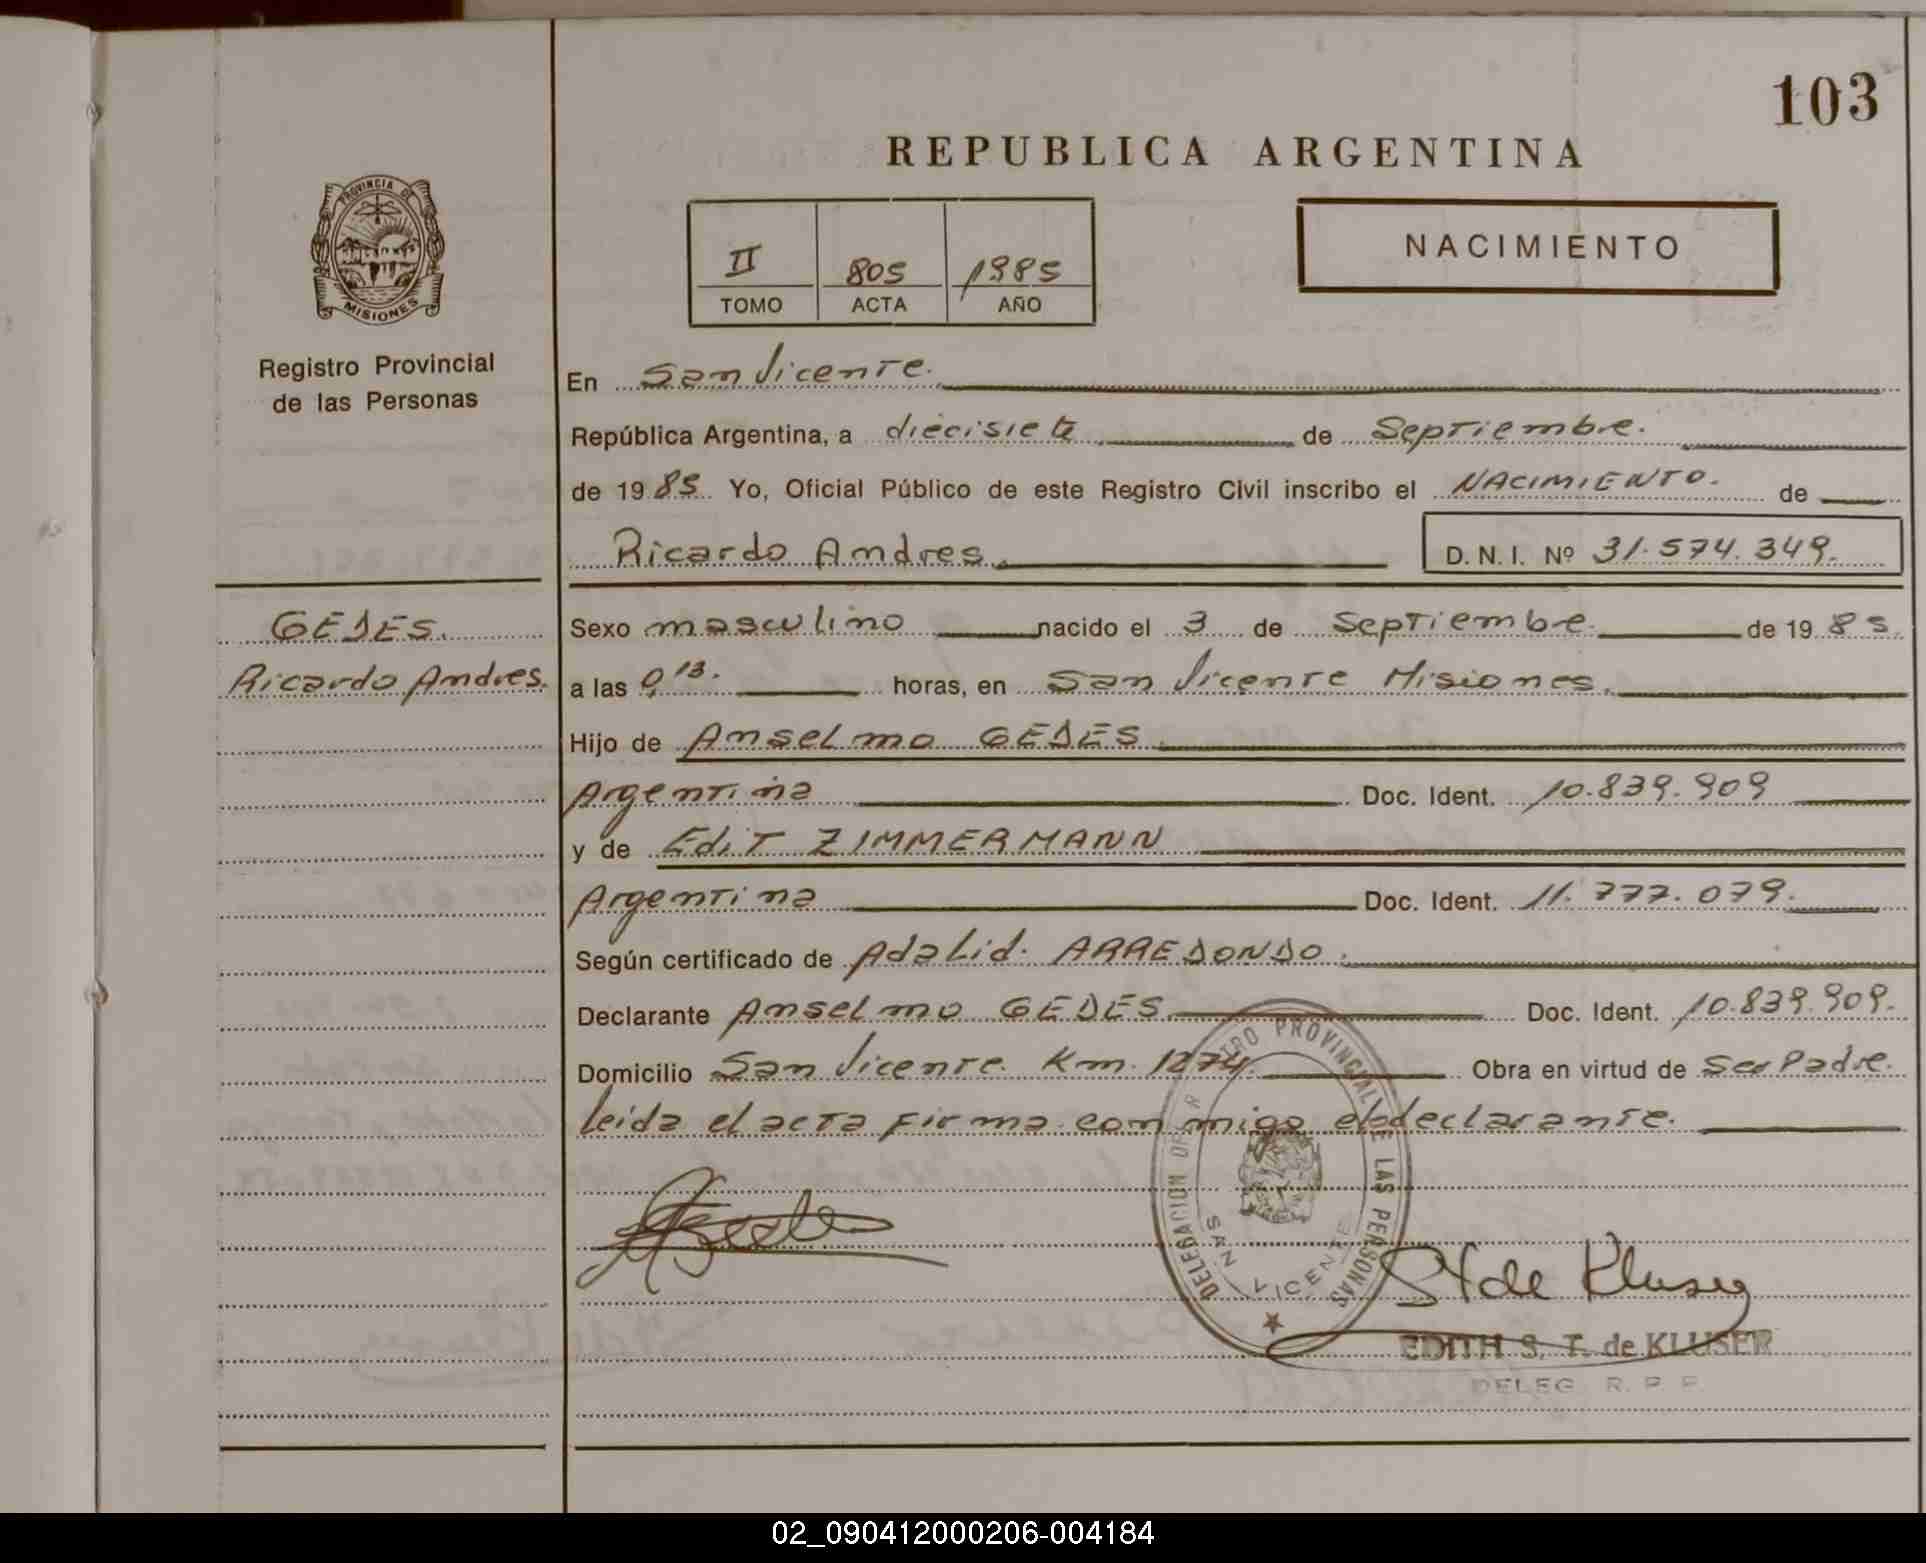 103
REPUBLICA ARGENTINA
PROVINCIA DE
MISIONES
Registro Provincial
de las Personas
II 805 1985
TOMO ACTA AÑO
NACIMIENTO
En San Vicente.
República Argentina, a diecisiete de Septiembre.
de 1985. Yo, Oficial Público de este Registro Civil inscribo el NACIMIENTO. de
Ricardo Andres. D. N. I. Nº 31.574.349.
GEDES.
Ricardo Andres.
Sexo masculino nacido el 3 de Septiembre. de 1985.
a las 0,13. horas, en San Vicente Misiones.
Hijo de Anselmo GEDES
Argentina Doc. Ident. 10.839.909
y de Edit ZIMMERMANN
Argentina Doc. Ident. 11.777.079.
Según certificado de Adalid. ARREDONDO.
Declarante Anselmo GEDES. Doc. Ident. 10.839.909.
Domicilio San Vicente. Km. 1274. Obra en virtud de Ser Padre.
leida el acta firma conmigo el declarante.
DELEGACION DEL REGISTRO PROVINCIAL DE LAS PERSONAS
SAN VICENTE
ST de Kluser
EDITH S. T. de KLUSER
DELEG. R. P. P.
02_090412000206-004184